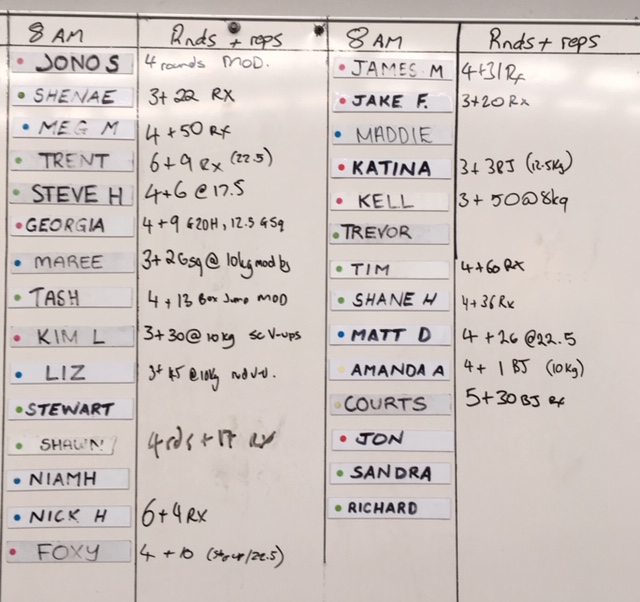 8 AM Rnds + reps
JONO S 4 rounds MOD.
SHENAE 3+22 RX
MEG M 4+50 RX
TRENT 6+9 RX (22.5)
STEVE H 4+6 @ 17.5
GEORGIA 4+9 G2OH, 12.5 GSq
MAREE 3+2 Gsq @ 10kg mod bj
TASH 4+13 Box Jump MOD
KIM L 3+30 @ 10 kg sc V-ups
LIZ @ 10kg
STEWART
SHAWN 4rds + 17 RX
NIAMH
NICK H 6+4 RX
FOXY 4 + 10
8 AM Rnds + reps
JAMES M 4+31 Rx
JAKE F. 3+20 Rx
MADDIE
KATINA 3+3BJ (12.5kg)
KELL 3+ 50@8kg
TREVOR
TIM 4+60 RX
SHANE H 4+36 RX
MATT D 4 +26 @22.5
AMANDA A 4+ 1 BJ (10kg)
COURTS 5+30 BJ Rx
JON
SANDRA
RICHARD